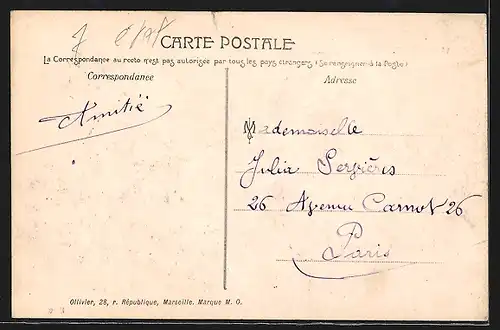 CARTE POSTALE
La Correspondance au recto n'est pas autorisée par tous les pays étrangers (Se renseigner à la Poste)
Correspondance
Adresse
Amitié
Mademoiselle
Julia
26 Avenue Carnot 26
Paris
Ollivier, 28, r. République, Marseille. Marque M. O.